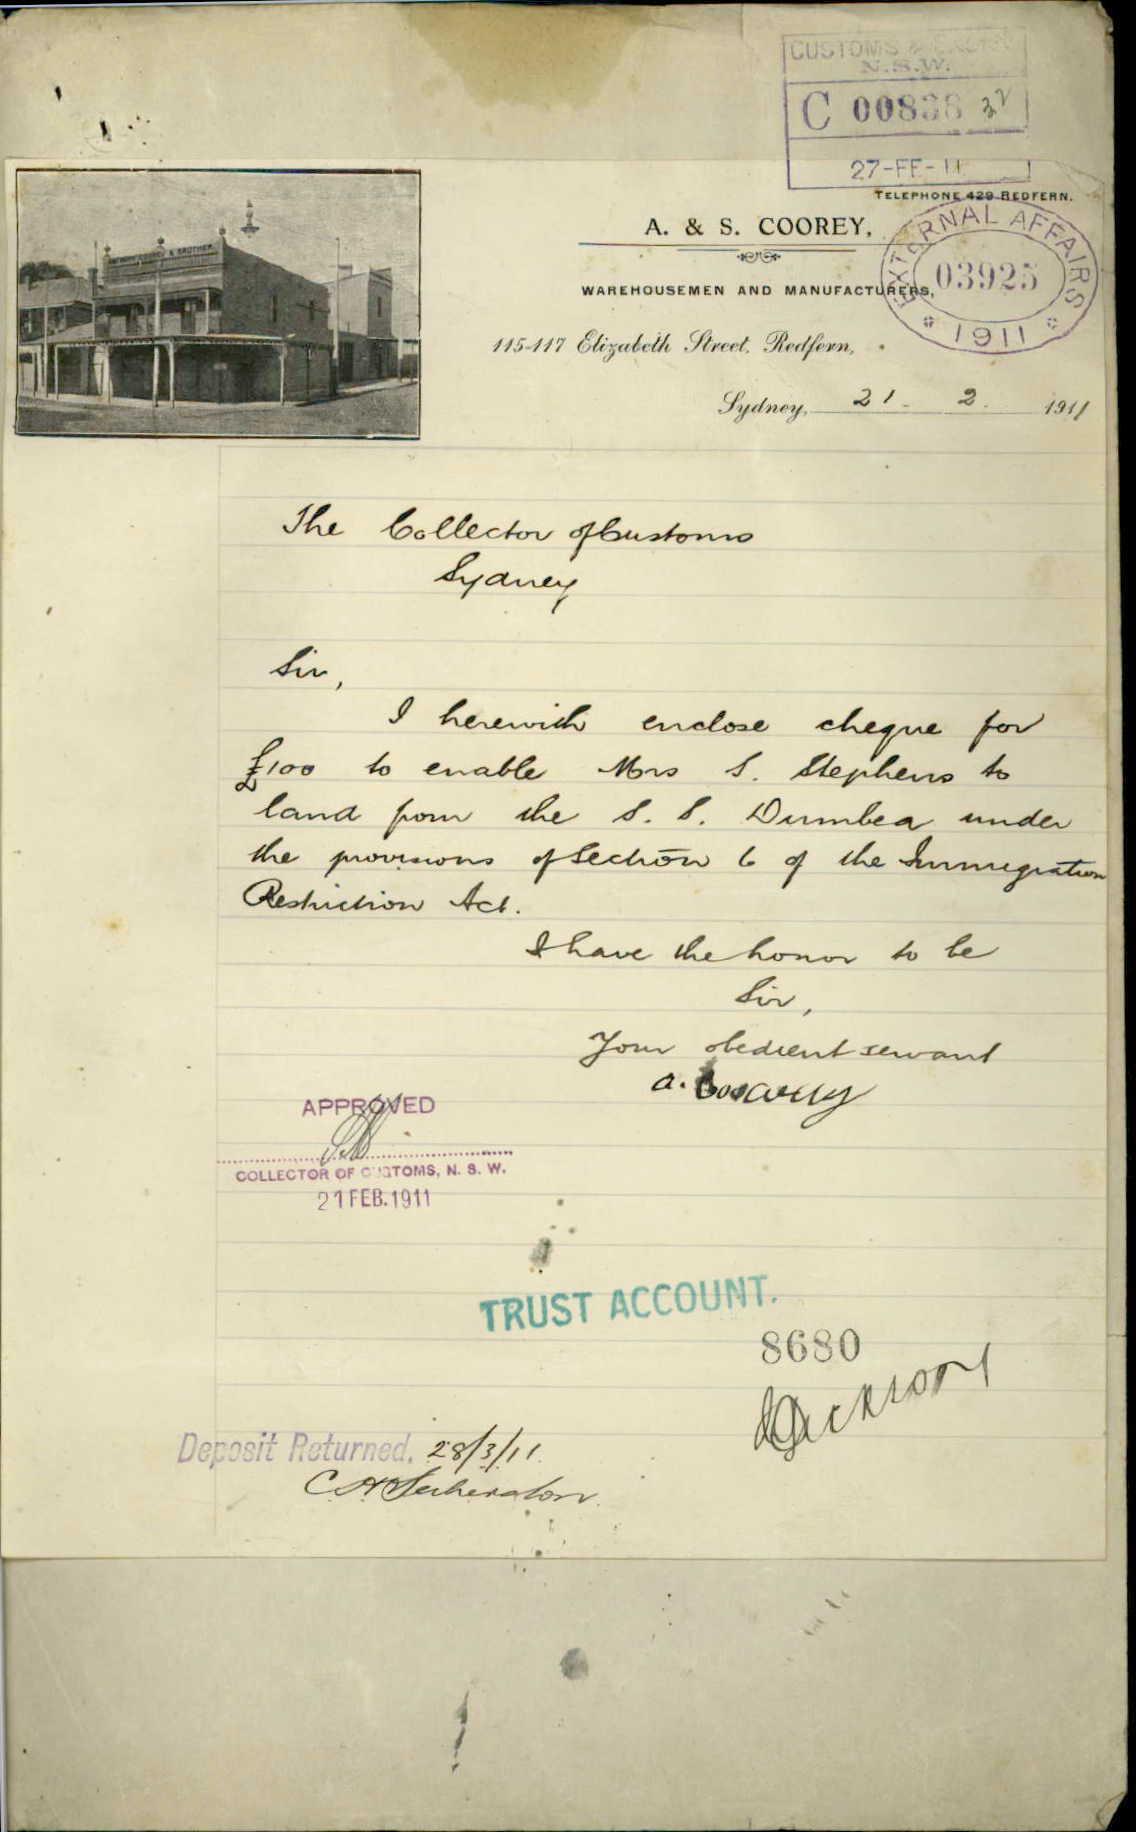 CUSTOMS & EXCISE
N.S.W.
C 00838 32
27-FE-11
TELEPHONE 429 REDFERN.
A. & S. COOREY,
WAREHOUSEMEN AND MANUFACTURERS,
EXTERNAL AFFAIRS
03925
1911
115-117 Elizabeth Street, Redfern,
Sydney, 21. 2. 1911
The Collector of Customs
Sydney
Sir,
I herewith enclose cheque for
£100 to enable Mrs S. Stephens to
land from the S. S. Dumbea under
the provisions of Section 6 of the Immigration
Restriction Act.
I have the honor to be
Sir,
Your obedient servant
A.
APPROVED
COLLECTOR OF CUSTOMS, N. S. W.
21 FEB. 1911
TRUST ACCOUNT.
8680
Deposit Returned, 28/3/11.